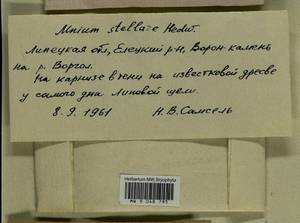 Mnium stellare Hedw.
Липецкая обл, Елецкий р-н, Ворон-камень
на р. Воргол.
На карнизе в нише на известковой дресве
у самого дна Липовой щели.
8.9.1961 Н.В.Самсель
Herbarium MW, Bryophyta
MW 9 048 793